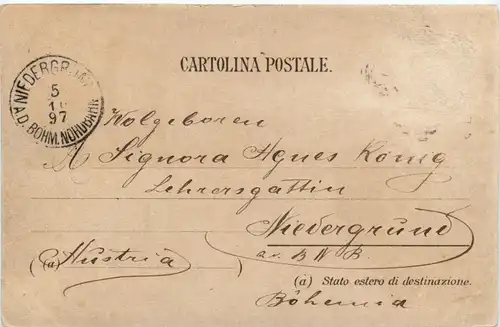 CARTOLINA POSTALE.
NIEDERGRUND
5
10
97
A.D. BÖHM. NORDBAHN
Wolgeboren
A Signora Agnes König
Lehrersgattin
Niedergrund
a. d. B N B.
(a) Austria
(a) Stato estero di destinazione.
Böhemia